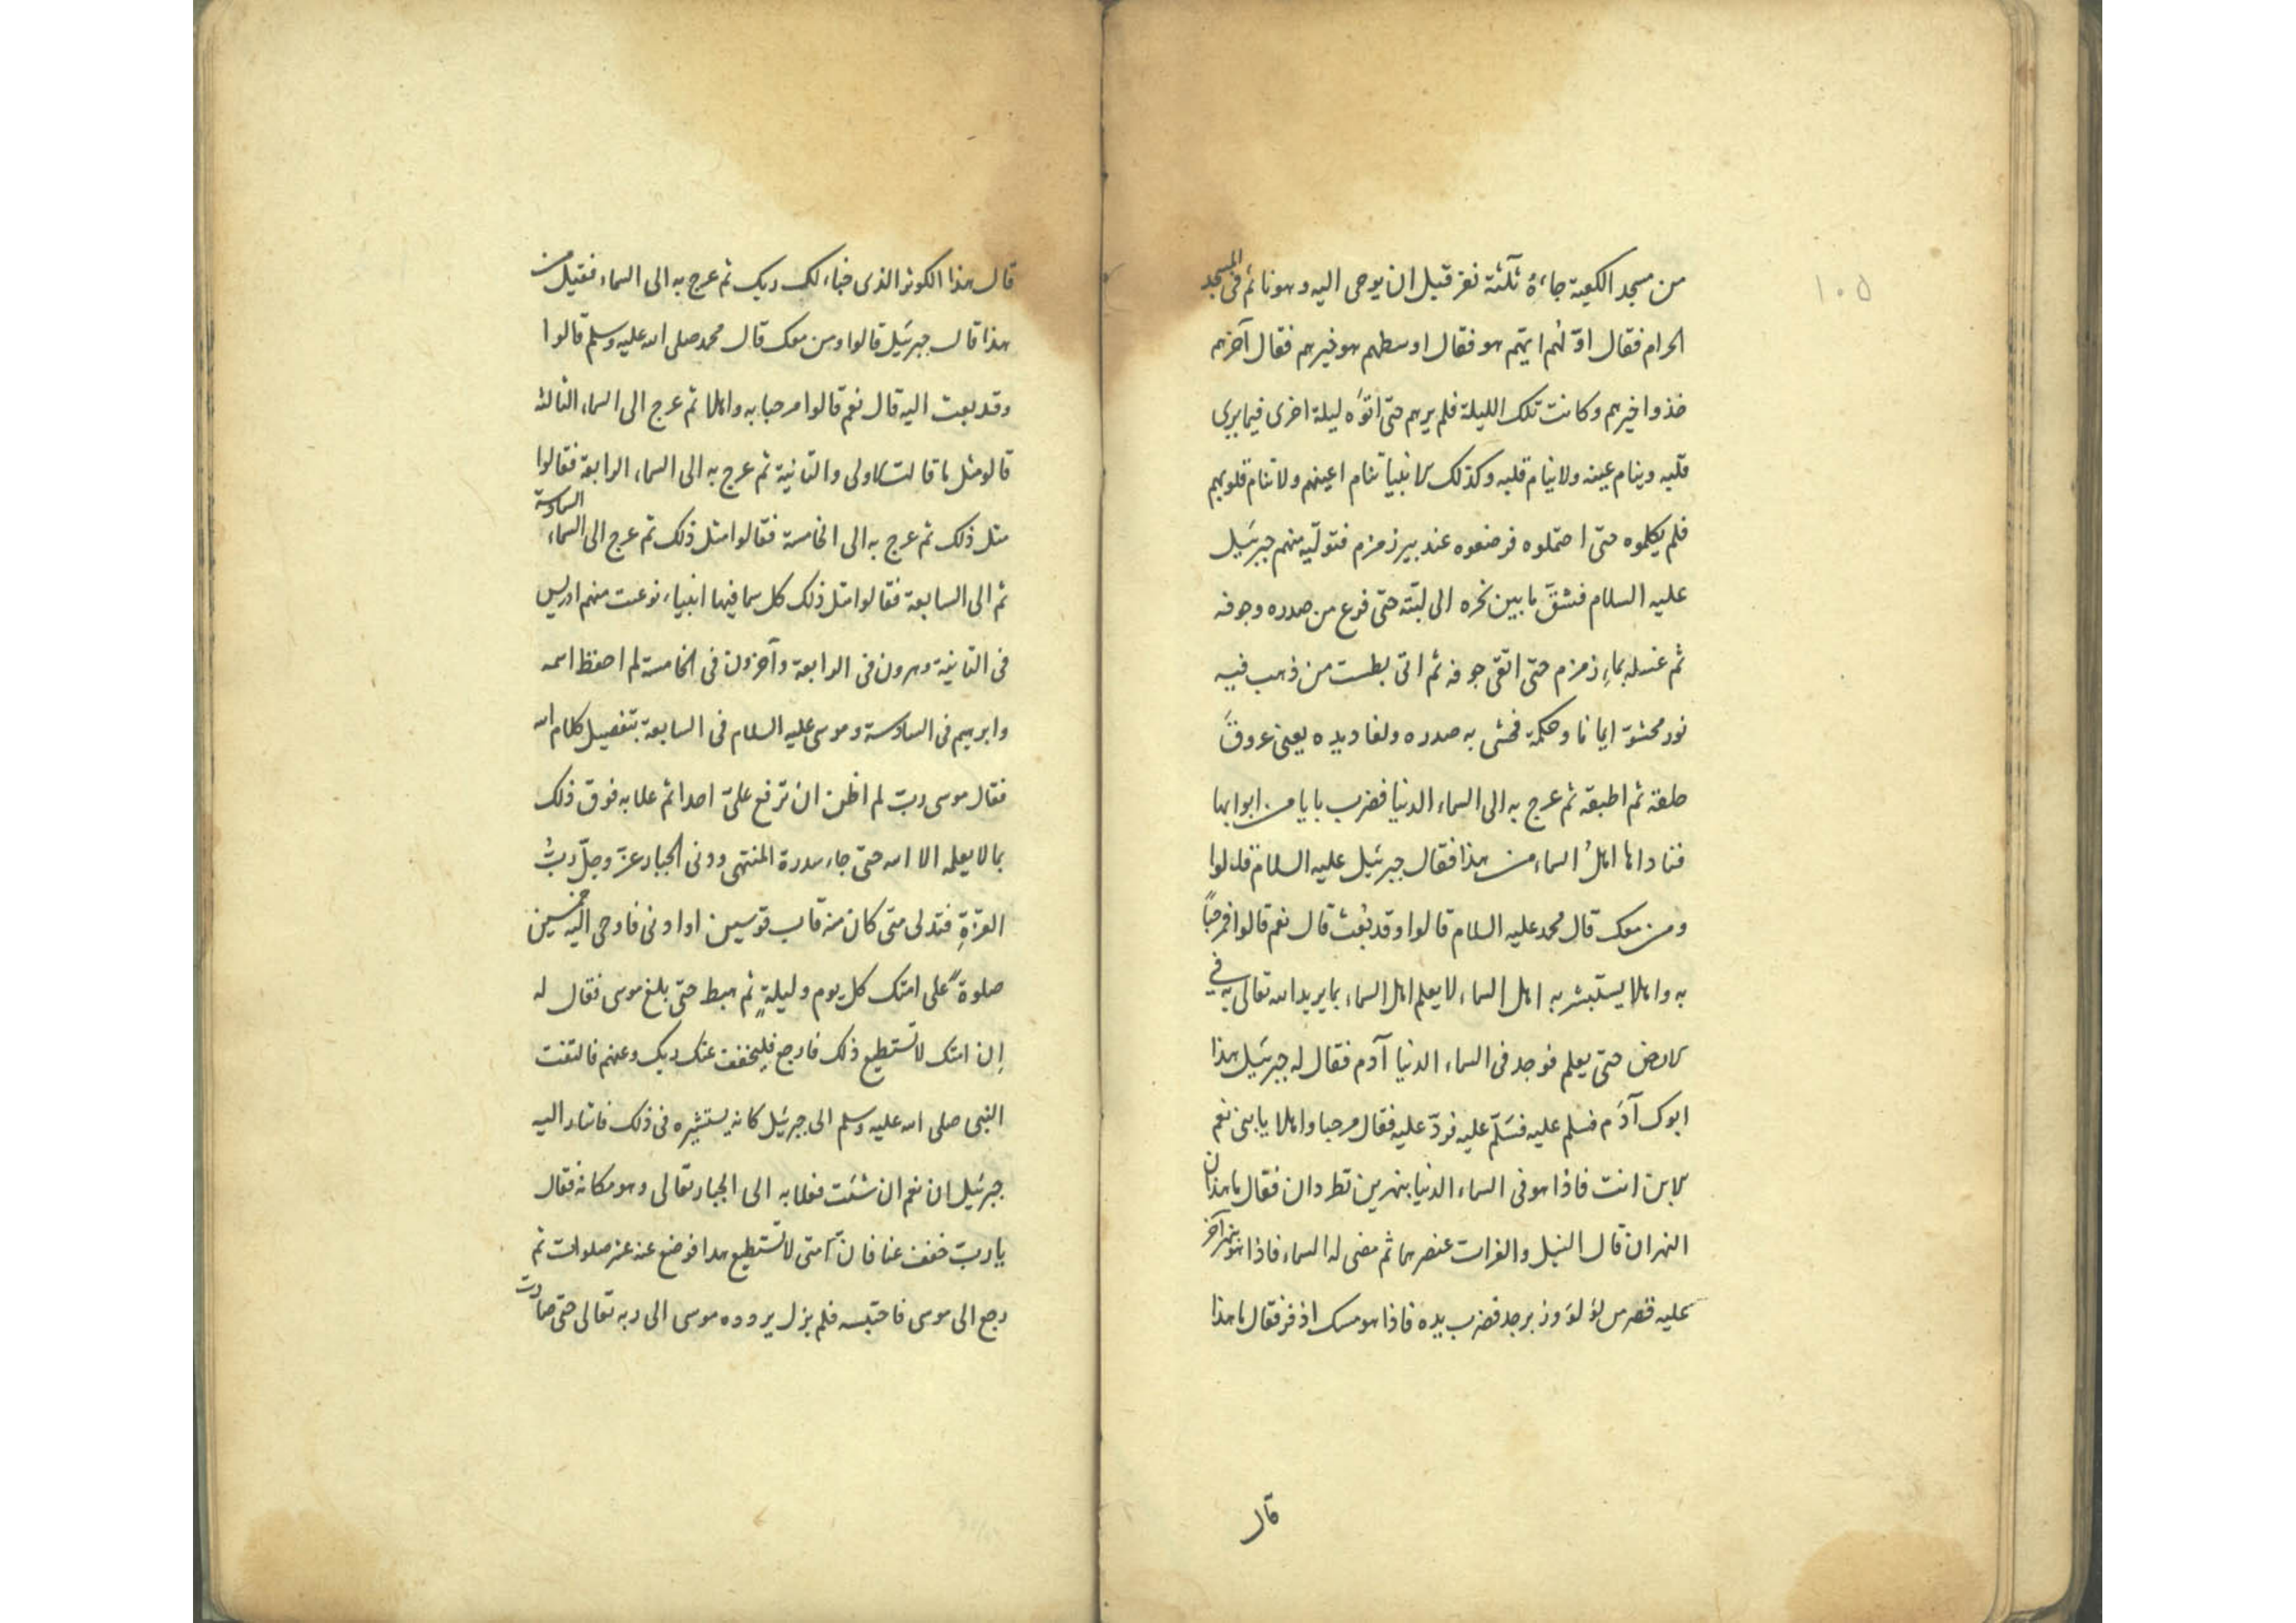 ١٠٥
من مسجد الكعبة جاءه ثلثة نفر قبل ان يوحى اليه وهو نائم فى المسجد
الحرام فقال اوّلهم ايّهم هو فقال اوسطهم هو خيرهم فقال آخرهم
خذوا خيرهم وكانت تلك الليلة فلم يرهم حتى اتوه ليلة اخرى فيما يرى
قلبه وينام عينه ولا ينام قلبه وكذلك الانبيا تنام اعينهم ولا تنام قلوبهم
فلم يكلموه حتى احتملوه فوضعوه عند بير زمزم فتولّيه منهم جبرئيل
عليه السلام فشقّ ما بين نحره الى لبته حتى فرغ من صدره وجوفه
ثم غسله بماء زمزم حتى انقى جوفه ثم اتى بطست من ذهب فيه
نور محشوّ ايمانا وحكمة فحشى به صدره ولغاديده يعنى عروق
حلقه ثم اطبقه ثم عرج به الى السماء الدنيا فضرب بابا من ابوابها
فناداها اهل السماء من هذا فقال جبرئيل عليه السلام قالوا
ومن معك قال محمد عليه السلام قالوا وقد بعث قال نعم قالوا فمرحبا
به واهلا يستبشر به اهل السماء لا يعلم اهل السماء بما يريد الله تعالى به فى
الارض حتى يعلم فوجد فى السماء الدنيا آدم فقال له جبرئيل هذا
ابوك آدم فسلم عليه فسلّم عليه فردّ عليه فقال مرحبا واهلا يا بنى نعم
الابن انت فاذا هو فى السماء الدنيا بنهرين تطردان فقال ما هذان
النهران قال النيل والفرات عنصرهما ثم مضى له السماء فاذا هو بنهر آخر
عليه قصر من لؤلؤ وزبرجد فضرب يده فاذا هو مسك اذفر فقال ما هذا
قال
قال هذا الكوثر الذى خباء لك ربك ثم عرج به الى السماء فقيل من
هذا قال جبرئيل قالوا ومن معك قال محمد صلى الله عليه وسلم قالوا
وقد بعث اليه قال نعم قالوا مرحبا به واهلا ثم عرج الى السماء الثالثه
قالو مثل ما قالت الاولى والثانية ثم عرج به الى السماء الرابعة فقالوا
مثل ذلك ثم عرج به الى الخامسة فقالوا مثل ذلك ثم عرج الى السماء السادسة
ثم الى السابعة فقالوا مثل ذلك كل سما فيها انبياء فوعيت منهم ادريس
فى الثانية وهرون فى الرابعة وآخرون فى الخامسة لم احفظ اسمه
وابرهيم فى السادسة وموسى عليه السلام فى السابعة بتفصيل كلام الله
فقال موسى ربّ لم اظن ان ترفع علىّ احدا ثم علا به فوق ذلك
بما لا يعلمه الا الله حتى جاء سدرة المنتهى ودنى الجبار عزّ وجلّ ربّ
العزّةِ فتدلى حتى كان منه قاب قوسين او ادنى فاوحى اليه خمسين
صلوةً على امتك كل يوم وليلةٍ ثم هبط حتى بلغ موسى فقال له
اِن امتك لا تستطيع ذلك فارجع فليخفف عنك ربك وعنهم فالتفت
النبى صلى الله عليه وسلم الى جبرئيل كانه يستشيره فى ذلك فاشار اليه
جبرئيل ان نعم ان شئت فعلا به الى الجبار تعالى وهو مكانه فقال
يا ربّ خفف عنا فانّ امتى لا تستطيع هذا فوضع عنه عشر صلوات ثم
رجع الى موسى فاحتبسه فلم يزل يردده موسى الى ربه تعالى حتى صارت